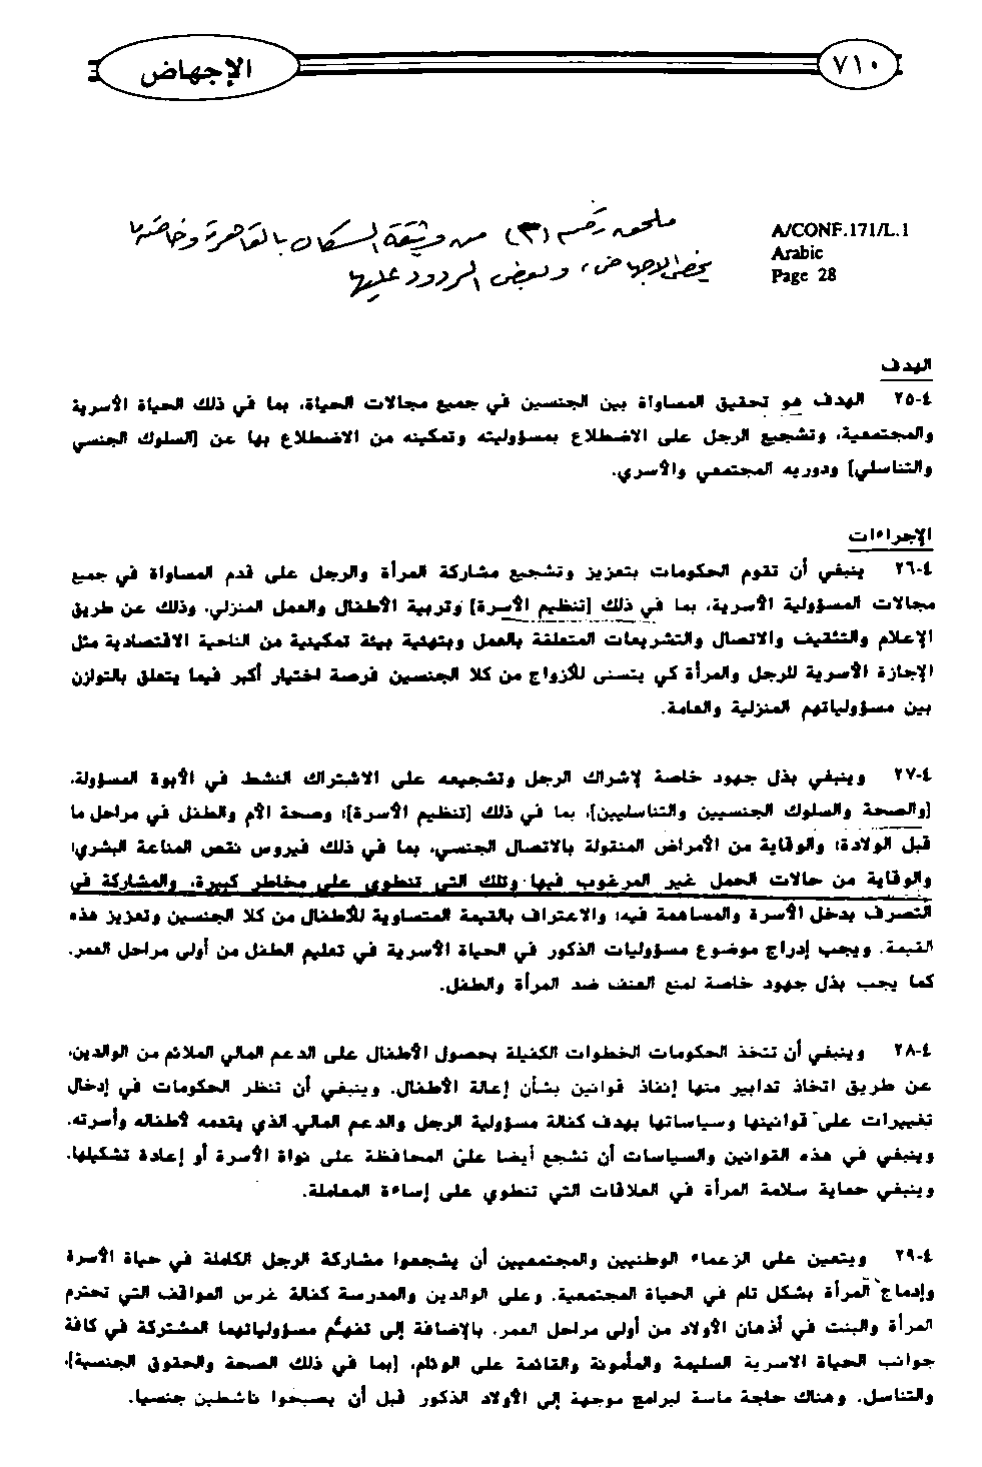 ٧١٠
الإجهاض
A/CONF.171/L.1
Arabic
Page 28
ملحق رقم (٣) من وثيقة السكان بالقاهرة وخاصة ما
يخص الإجهاض، وبعض الردود عليها
الهدف
٤-٢٥ الهدف هو تحقيق المساواة بين الجنسين في جميع مجالات الحياة، بما في ذلك الحياة الأسرية
والمجتمعية، وتشجيع الرجل على الاضطلاع بمسؤوليته وتمكينه من الاضطلاع بها عن [السلوك الجنسي
والتناسلي] ودوريه المجتمعي والأسري.
الإجراءات
٤-٢٦ ينبغي أن تقوم الحكومات بتعزيز وتشجيع مشاركة المرأة والرجل على قدم المساواة في جميع
مجالات المسؤولية الأسرية، بما في ذلك [تنظيم الأسرة] وتربية الأطفال والعمل المنزلي، وذلك عن طريق
الإعلام والتثقيف والاتصال والتشريعات المتعلقة بالعمل وبتهيئة بيئة تمكينية من الناحية الاقتصادية مثل
الإجازة الأسرية للرجل والمرأة كي يتسنى للأزواج من كلا الجنسين فرصة اختيار أكبر فيما يتعلق بالتوازن
بين مسؤولياتهم المنزلية والعامة.
٤-٢٧ وينبغي بذل جهود خاصة لإشراك الرجل وتشجيعه على الاشتراك النشط في الأبوة المسؤولة،
[والصحة والسلوك الجنسيين والتناسليين]، بما في ذلك [تنظيم الأسرة]؛ وصحة الأم والطفل في مراحل ما
قبل الولادة؛ والوقاية من الأمراض المنقولة بالاتصال الجنسي، بما في ذلك فيروس نقص المناعة البشري؛
والوقاية من حالات الحمل غير المرغوب فيها وتلك التي تنطوي على مخاطر كبيرة، والمشاركة في
التصرف بدخل الأسرة والمساهمة فيه؛ والاعتراف بالقيمة المتساوية للأطفال من كلا الجنسين وتعزيز هذه
القيمة. ويجب إدراج موضوع مسؤوليات الذكور في الحياة الأسرية في تعليم الطفل من أولى مراحل العمر.
كما يجب بذل جهود خاصة لمنع العنف ضد المرأة والطفل.
٤-٢٨ وينبغي أن تتخذ الحكومات الخطوات الكفيلة بحصول الأطفال على الدعم المالي الملائم من الوالدين،
عن طريق اتخاذ تدابير منها إنفاذ قوانين بشأن إعالة الأطفال. وينبغي أن تنظر الحكومات في إدخال
تغييرات على قوانينها وسياساتها بهدف كفالة مسؤولية الرجل والدعم المالي الذي يقدمه لأطفاله وأسرته.
وينبغي في هذه القوانين والسياسات أن تشجع أيضا على المحافظة على نواة الأسرة أو إعادة تشكيلها.
وينبغي حماية سلامة المرأة في العلاقات التي تنطوي على إساءة المعاملة.
٤-٢٩ ويتعين على الزعماء الوطنيين والمجتمعيين أن يشجعوا مشاركة الرجل الكاملة في حياة الأسرة
وإدماج المرأة بشكل تام في الحياة المجتمعية. وعلى الوالدين والمدرسة كفالة غرس المواقف التي تحترم
المرأة والبنت في أذهان الأولاد من أولى مراحل العمر، بالإضافة إلى تفهم مسؤولياتهما المشتركة في كافة
جوانب الحياة الاسرية السليمة والمأمونة والقائمة على الوئام، [بما في ذلك الصحة والحقوق الجنسية]،
والتناسل. وهناك حاجة ماسة لبرامج موجهة إلى الأولاد الذكور قبل أن يصبحوا ناشطين جنسيا.